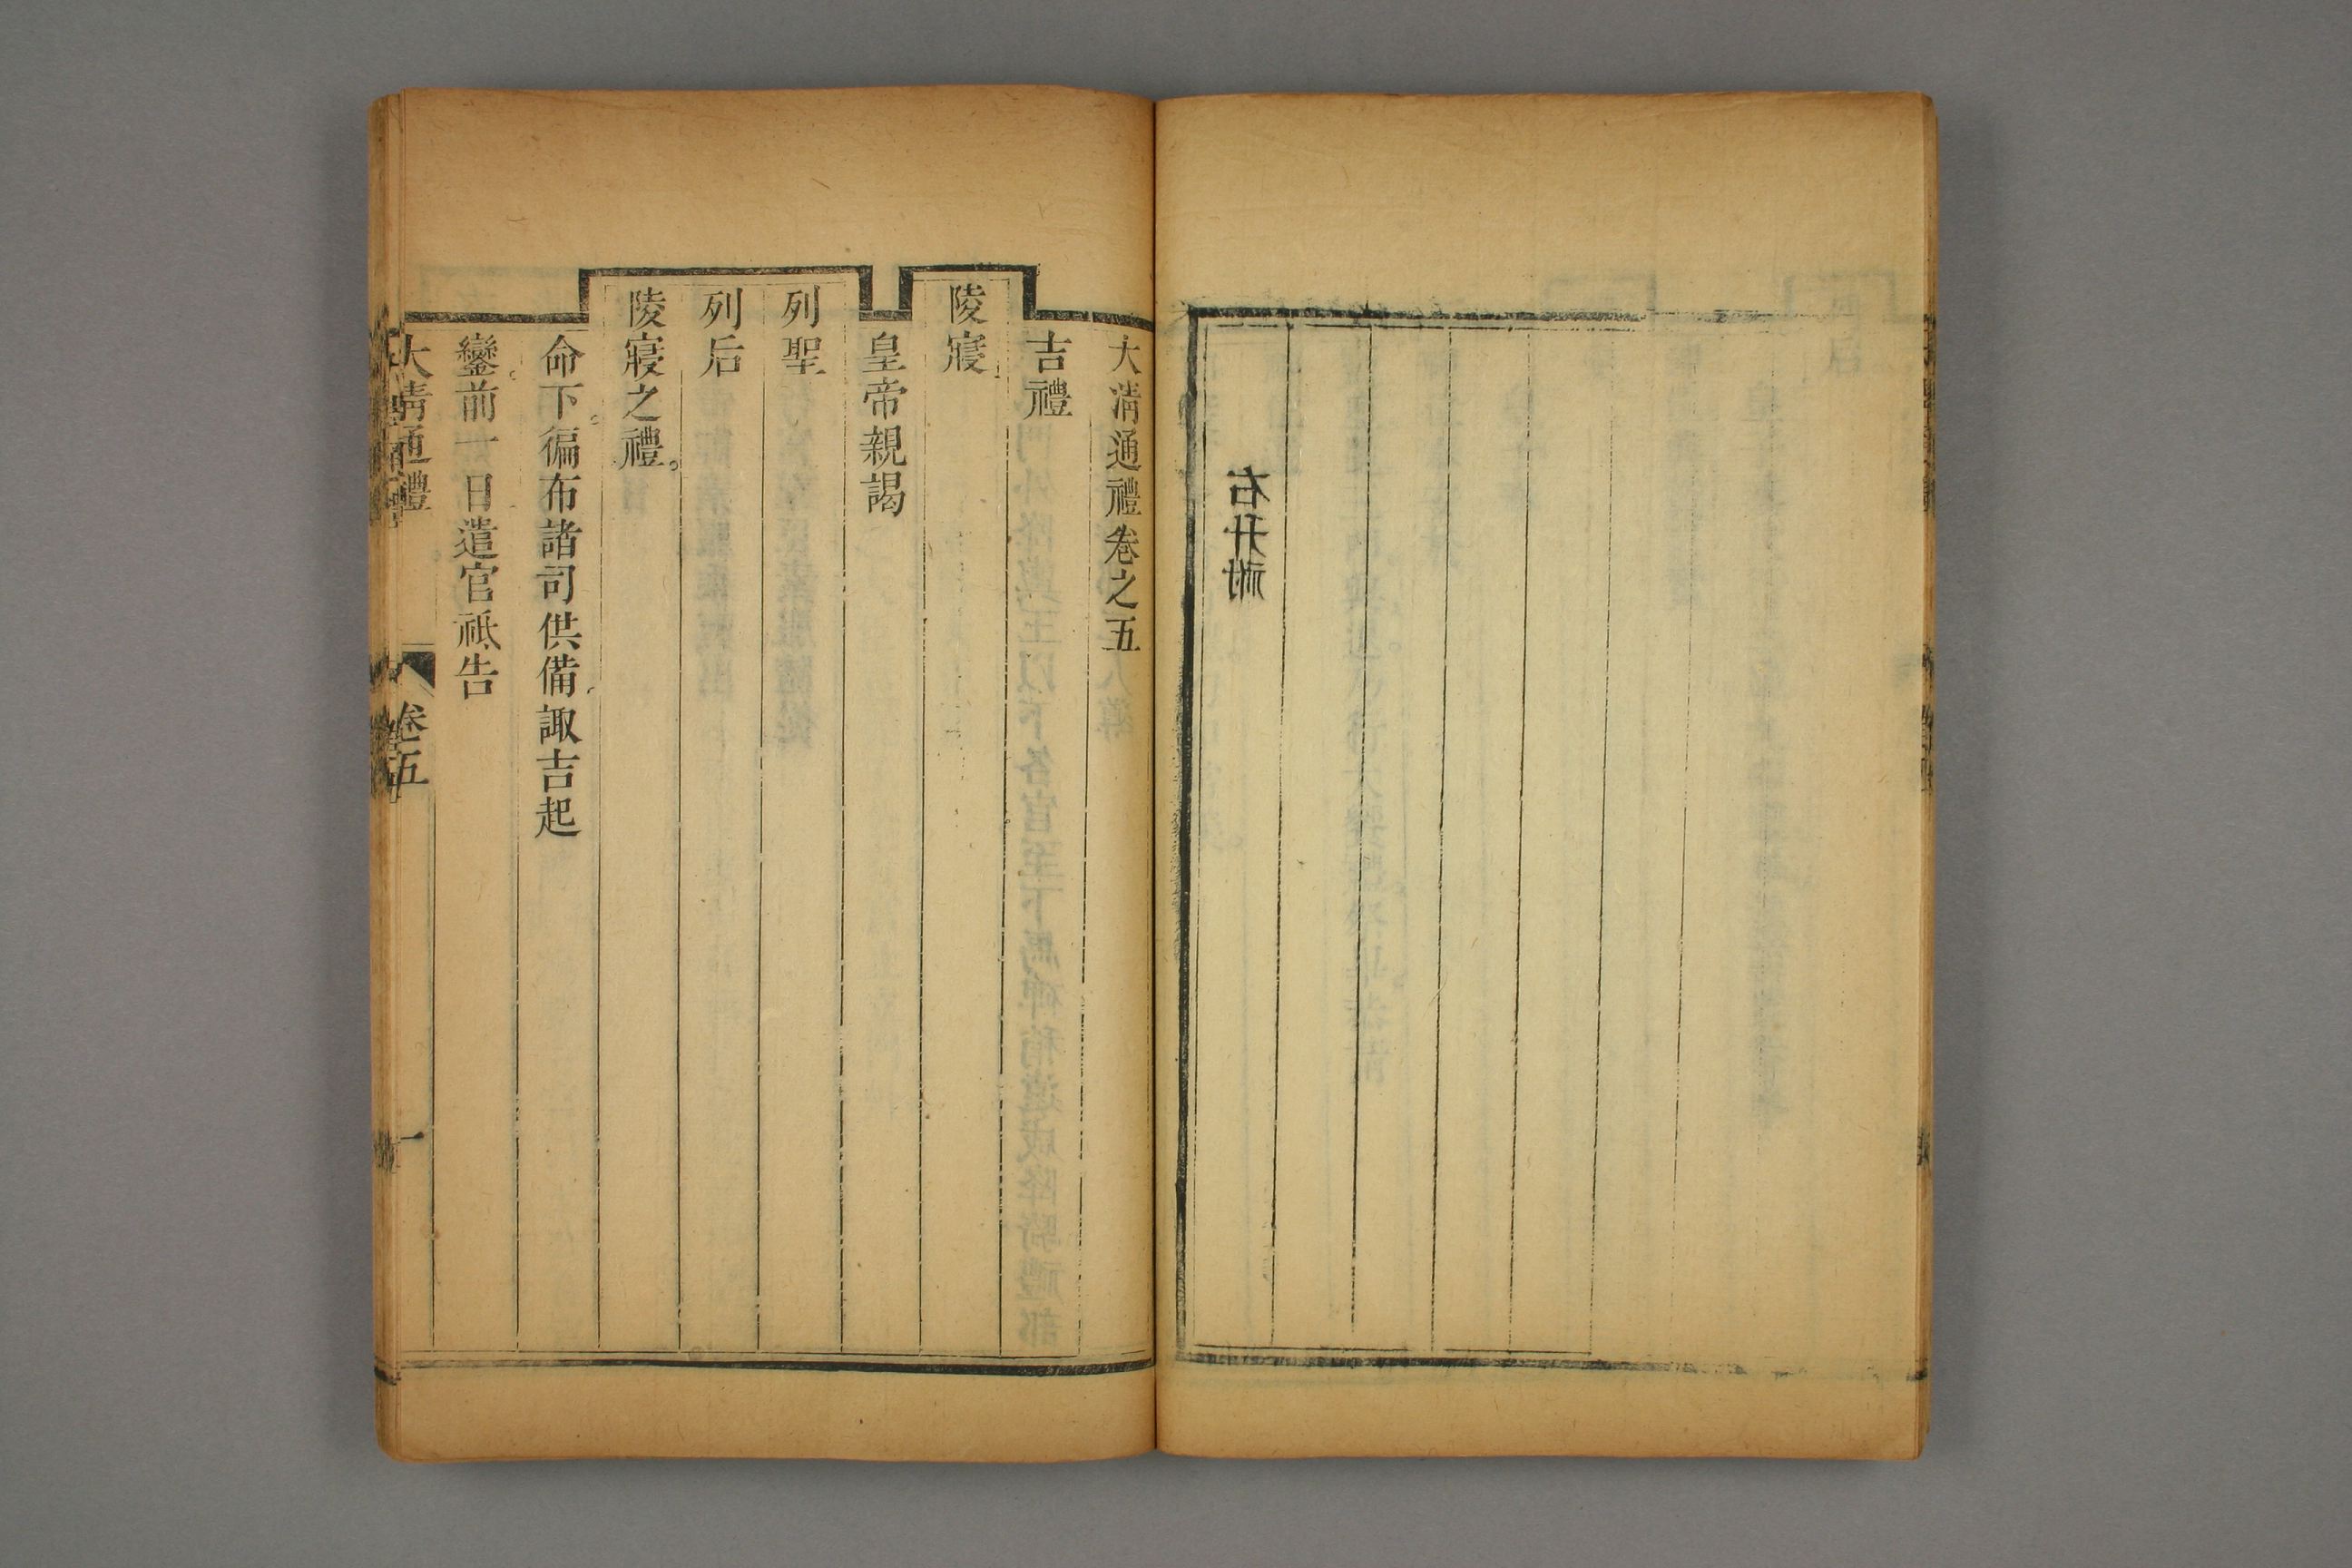 右升祔
大清通禮卷之五
吉禮
陵寢
皇帝親謁
列聖
列后
陵寢之禮。
命下。徧布諸司供備。諏吉起
鑾。前一日遣官祗告
大清通禮 卷五 一